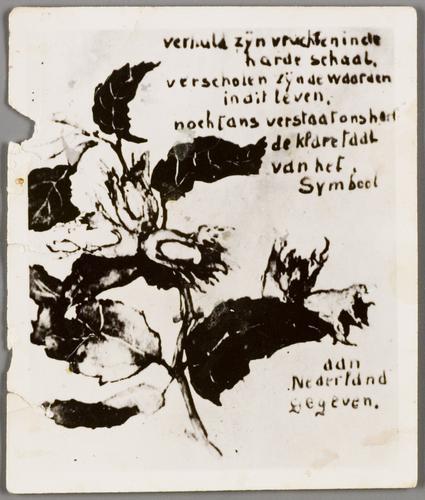 verhuld zijn vruchten in de
harde schaal.
verscholen zijn de waarden
in dit leven.
nochtans verstaat ons hart
de klare taal
van het
Symbool
aan
Nederland
gegeven.